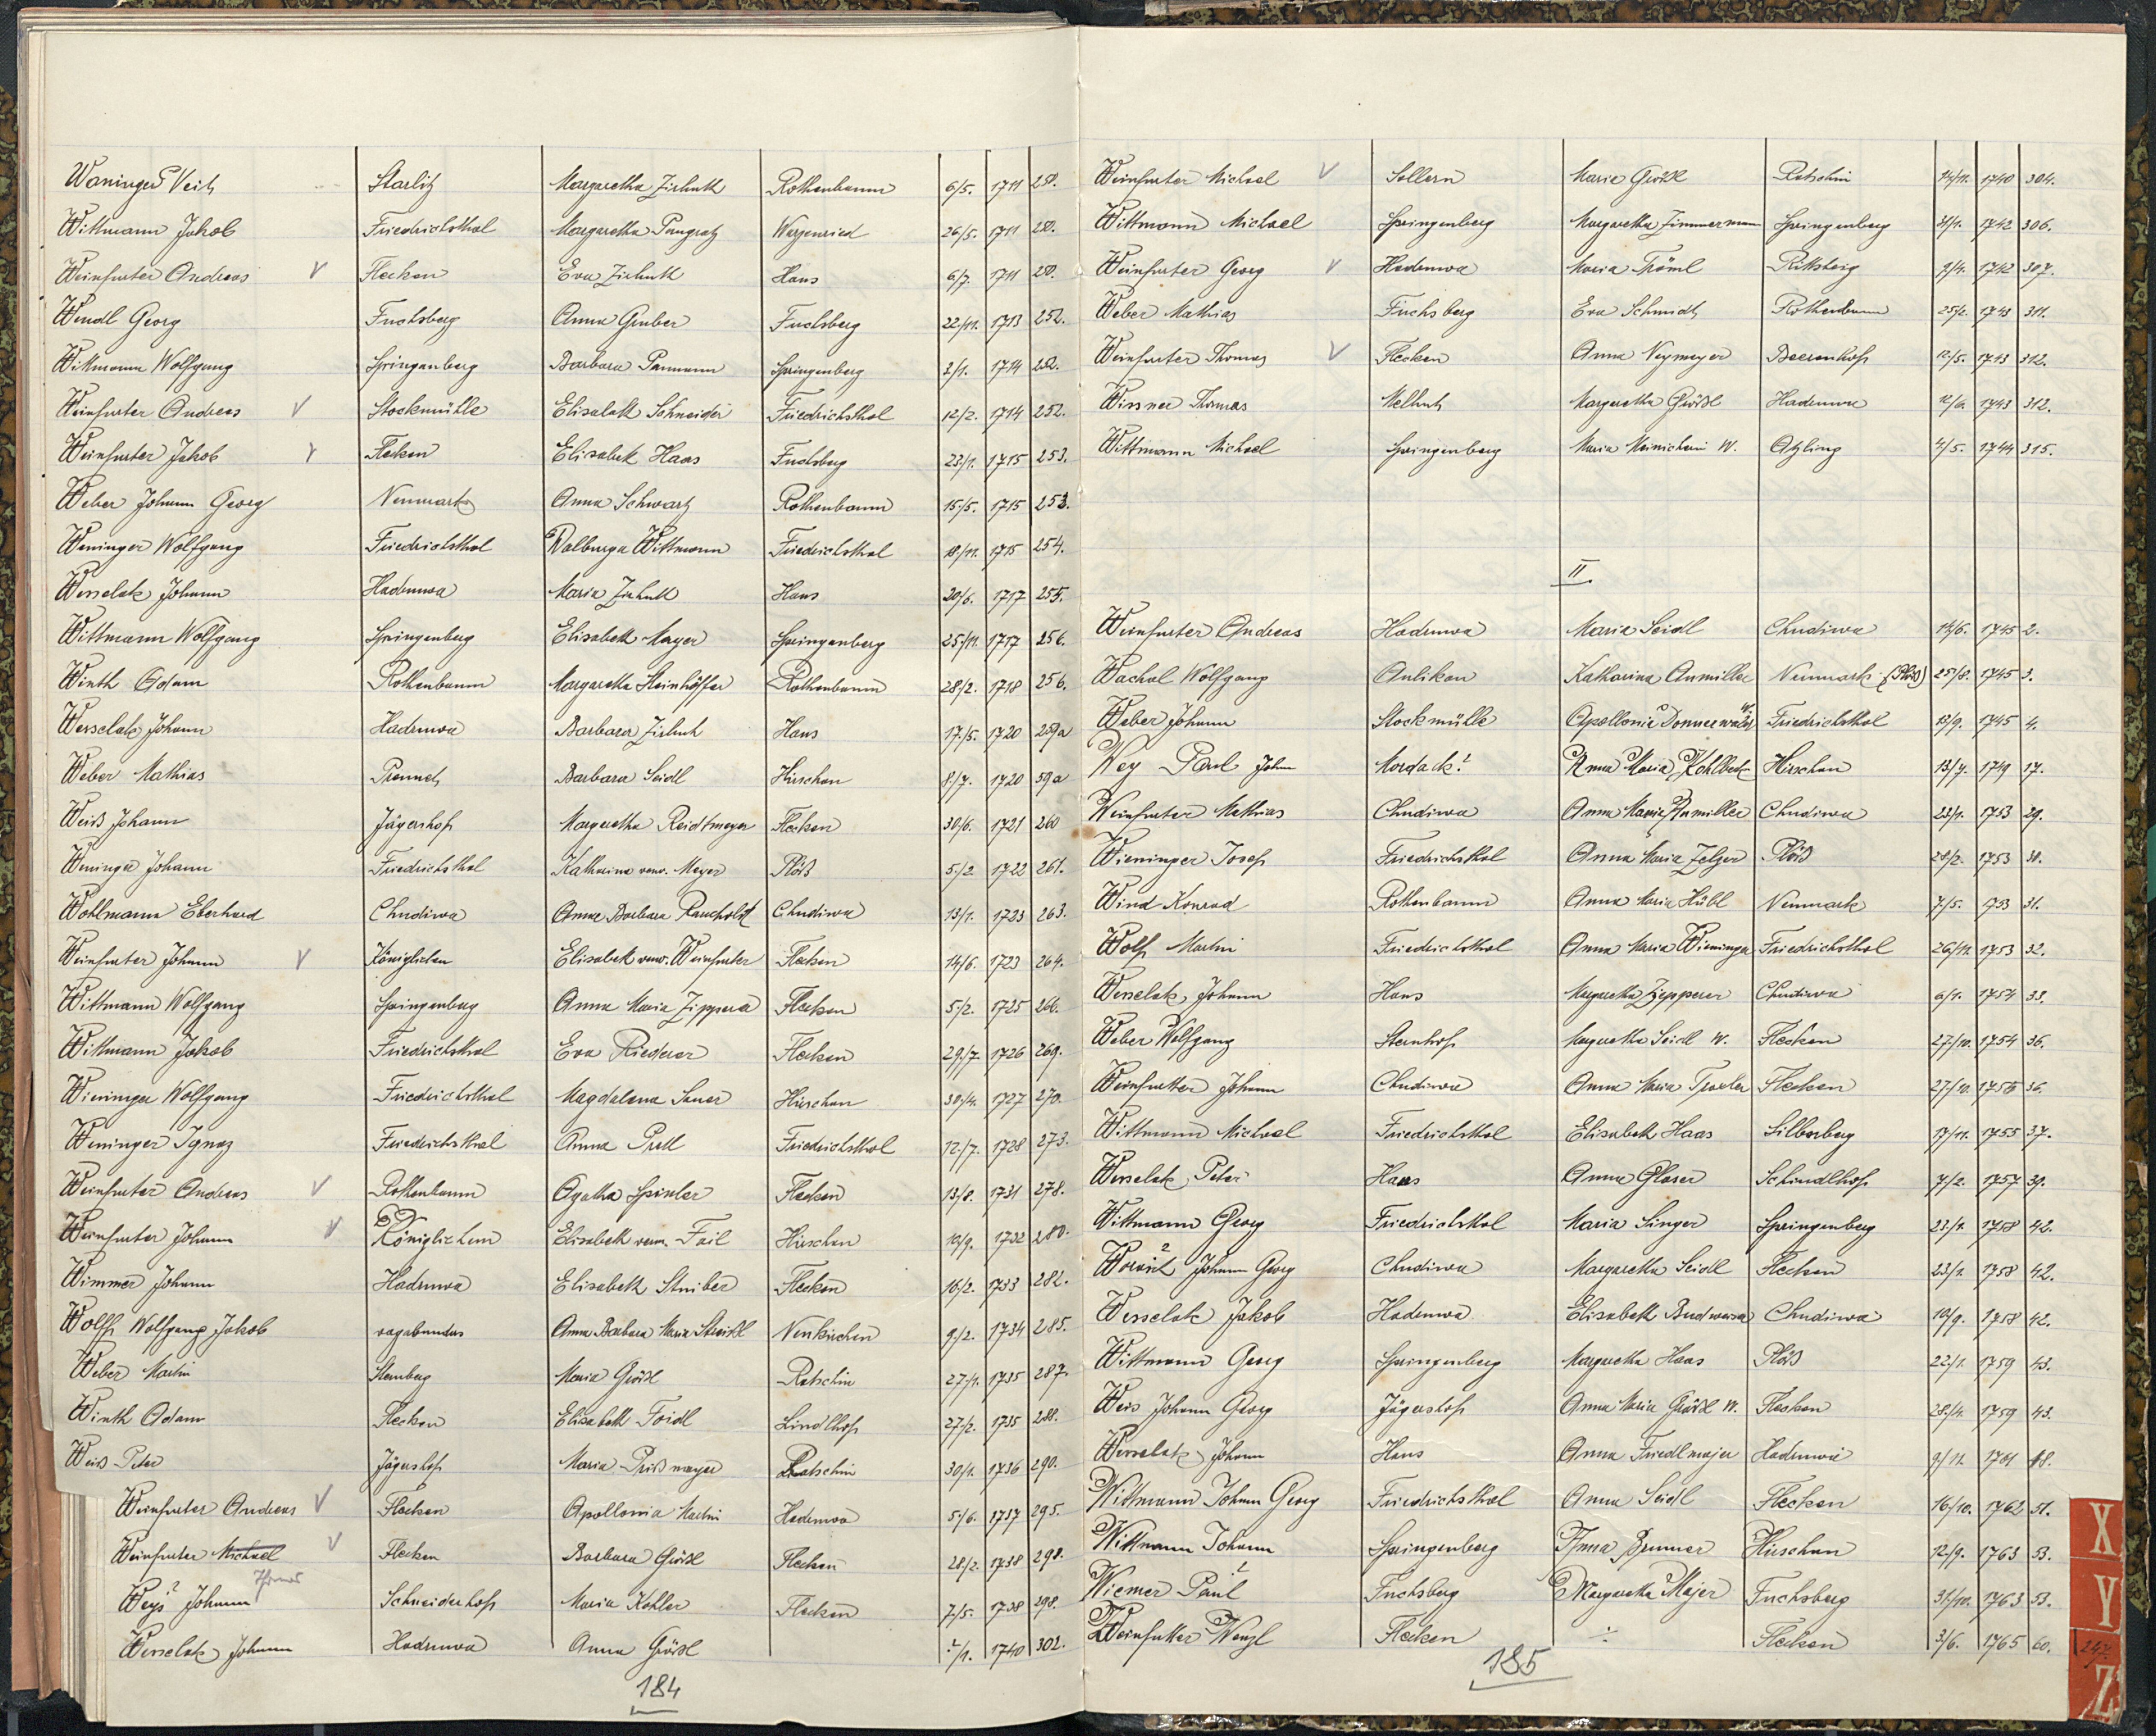 Waninger Veit Starlitz Margaretha Zirhuth Rothenbaum 6/5. 1711 250.
Wittmann Jakob Friedrichsthal Margaretha Pangratz Warzenried 26/5. 1711 250.
Weinfurter Andreas V Flecken Eva Zirhuth Haas 6/7. 1711 250.
Wendl Georg Fuchsberg Anna Gruber Fuchsberg 22/11. 1713 252.
Wittmann Wolfgang Springenberg Barbara Springenberg 2/1. 1714 252.
Weinfurter Andreas V Stockmühle Elisabeth Schneider Friedrichsthal 12/2. 1714 252.
Weinfurter Jakob V Flecken Elisabeth Haas Fuchsberg 23/1. 1715 253.
Weber Johann Georg Neumark Anna Schwarz Rothenbaum 15/5. 1715 253.
Weninger Wolfgang Friedrichsthal Walburga Wittmann Friedrichsthal 18/11. 1715 254.
Wesselak Johann Hadruwa Maria Zirhuth Haas 20/6. 1717 255.
Wittmann Wolfgang Springenberg Elisabeth Mayer Springenberg 25/11. 1717 256.
Wirth Adam Rothenbaum Margaretha Steinhöffer Rothenbaum 28/2. 1718 256.
Wesselak Johann Hadruwa Barbara Zirhuth Haas 17/5. 1720 259a
Weber Mathias Prennet Barbara Seidl Hirschau 8/7. 1720 59a
Weiß Johann Jägershof Margaretha Reidtmeyer Flecken 30/6. 1721 260
Weninger Johann Friedrichsthal Katharina verw. Meyer Plöß 5/2. 1722 261.
Wohlmann Eberhard Chudiwa Anna Barbara Rauchold Chudiwa 13/1. 1723 263.
Weinfurter Johann V Königlichen Elisabeth verw. Weinfurter Flecken 14/6. 1723 264.
Wittmann Wolfgang Springenberg Anna Maria Zipperer Flecken 5/2. 1725 266.
Wittmann Jakob Friedrichsthal Eva Riederer Flecken 29/7. 1726 269.
Wieninger Wolfgang Friedrichsthal Magdalena Sauer Hirschau 30/4. 1727 270.
Weninger Ignaz Friedrichsthal Anna Prell Friedrichsthal 12/7. 1728 273.
Weinfurter Andreas V Rothenbaum Agatha Spinler Flecken 13/8. 1731 278.
Weinfurter Johann V Königlichen Elisabeth verw. Fail Hirschau 10/9. 1732 280.
Wimmer Johann Hadruwa Elisabeth Stuiber Flecken 16/2. 1733 282.
Wolff Wolfgang Jakob vagabundus Anna Barbara Maria Neukirchen 9/2. 1734 285.
Weber Martin Sternberg Maria Größl Rotschin 27/1. 1735 287.
Wirth Adam Flecken Elisabeth Foidl Lindlhof 27/2. 1735 288.
Weiß Peter Jägershof Maria Prißmayer Rotschin 30/1. 1736 290.
Weinfurter Andreas V Flecken Apollonia Martini Hadruwa 5/6. 1737 295.
Weinfurter Michael V Flecken Barbara Größl Flecken 28/2. 1738 298.
Thomas
Weyß? Johann Schneiderhof Maria Kohler Flecken 7/5. 1738 298.
Wesselak Johann Hadruwa Anna Größl ?/1. 1740 302.
184
Weinfurter Michael V Sollern Maria Größl Rotschin 14/11. 1740 304.
Wittmann Michael Springenberg Margaretha Zimmermann Springenberg 31/1. 1742 306.
Weinfurter Georg V Hadruwa Maria Thöml Rittsteig 9/4. 1742 307.
Weber Mathias Fuchsberg Eva Schmidt Rothenbaum 25/2. 1743 311.
Weinfurter Thomas V Flecken Anna Neymeyer Beerenhof 12/5. 1743 312.
Wissner Thomas Melhut Margaretha Größl Hadruwa 12/6. 1743 312.
Wittmann Michael Springenberg Maria W. Atzling 4/5. 1744 315.
II
Weinfurter Andreas Hadruwa Maria Seidl Chudiwa 14/6. 1745 2.
Wachal Wolfgang Aulikau Katharina Aumiller Neumark (Plöß) 25/8. 1745 3.
Weber Johann Stockmühle Apollonia Donnerwald W. Friedrichsthal 13/9. 1745 4.
Wey Paul John Mordack? Anna Maria Kohlbeck Hirschau 13/7. 1749 17.
Weinfurter Mathias Chudiwa Anna Maria Aumiller Chudiwa 22/1. 1753 29.
Wieninger Josef Friedrichsthal Anna Maria Zelzer Plöß 20/2. 1753 30.
Wind Konrad Rothenbaum Anna Maria Hübl Neumark 7/5. 1753 31.
Wolf Martin Friedrichsthal Anna Maria Wieninger Friedrichsthal 26/11. 1753 32.
Wesselak Johann Haas Margaretha Zepperer Chudiwa 6/1. 1754 33.
Weber Wolfgang Sternhof Margaretha Seidl W. Flecken 27/10. 1754 36.
Weinfurtter Johann Chudiwa Anna Maria Flecken 27/10. 1755 36.
Wittmann Michael Friedrichsthal Elisabeth Haas Silberberg 17/11. 1755 37.
Wesselak Peter Haas Anna Glaser Schindlhof 7/2. 1757 39.
Wittmann Georg Friedrichsthal Maria Singer Springenberg 23/1. 1758 42.
Johann Georg Chudiwa Margaretha Seidl Flecken 23/1. 1758 42.
Wesselak Jakob Hadruwa Elisabeth Budweiser Chudiwa 10/9. 1758 42.
Wittmann Georg Springenberg Margaretha Haas Plöß 22/1. 1759 43.
Weis Johann Georg Jägershof Anna Maria Größl W. Flecken 28/4. 1759 43.
Wesselak Johann Haas Anna Friedlmajer Hadruwa 9/11. 1761 48.
Wittmann Johann Georg Friedrichsthal Anna Seidl Flecken 16/10. 1762 51.
Wittmann Johann Springenberg Anna Brunner Hirschau 12/9. 1763 53.
Wiemer? Paul Fuchsberg Margaretha Majer Fuchsberg 31/10. 1763 53.
Weinfurtter Wenzl Flecken ÷ Flecken 3/6. 1765 60.
185
X
Y
Z